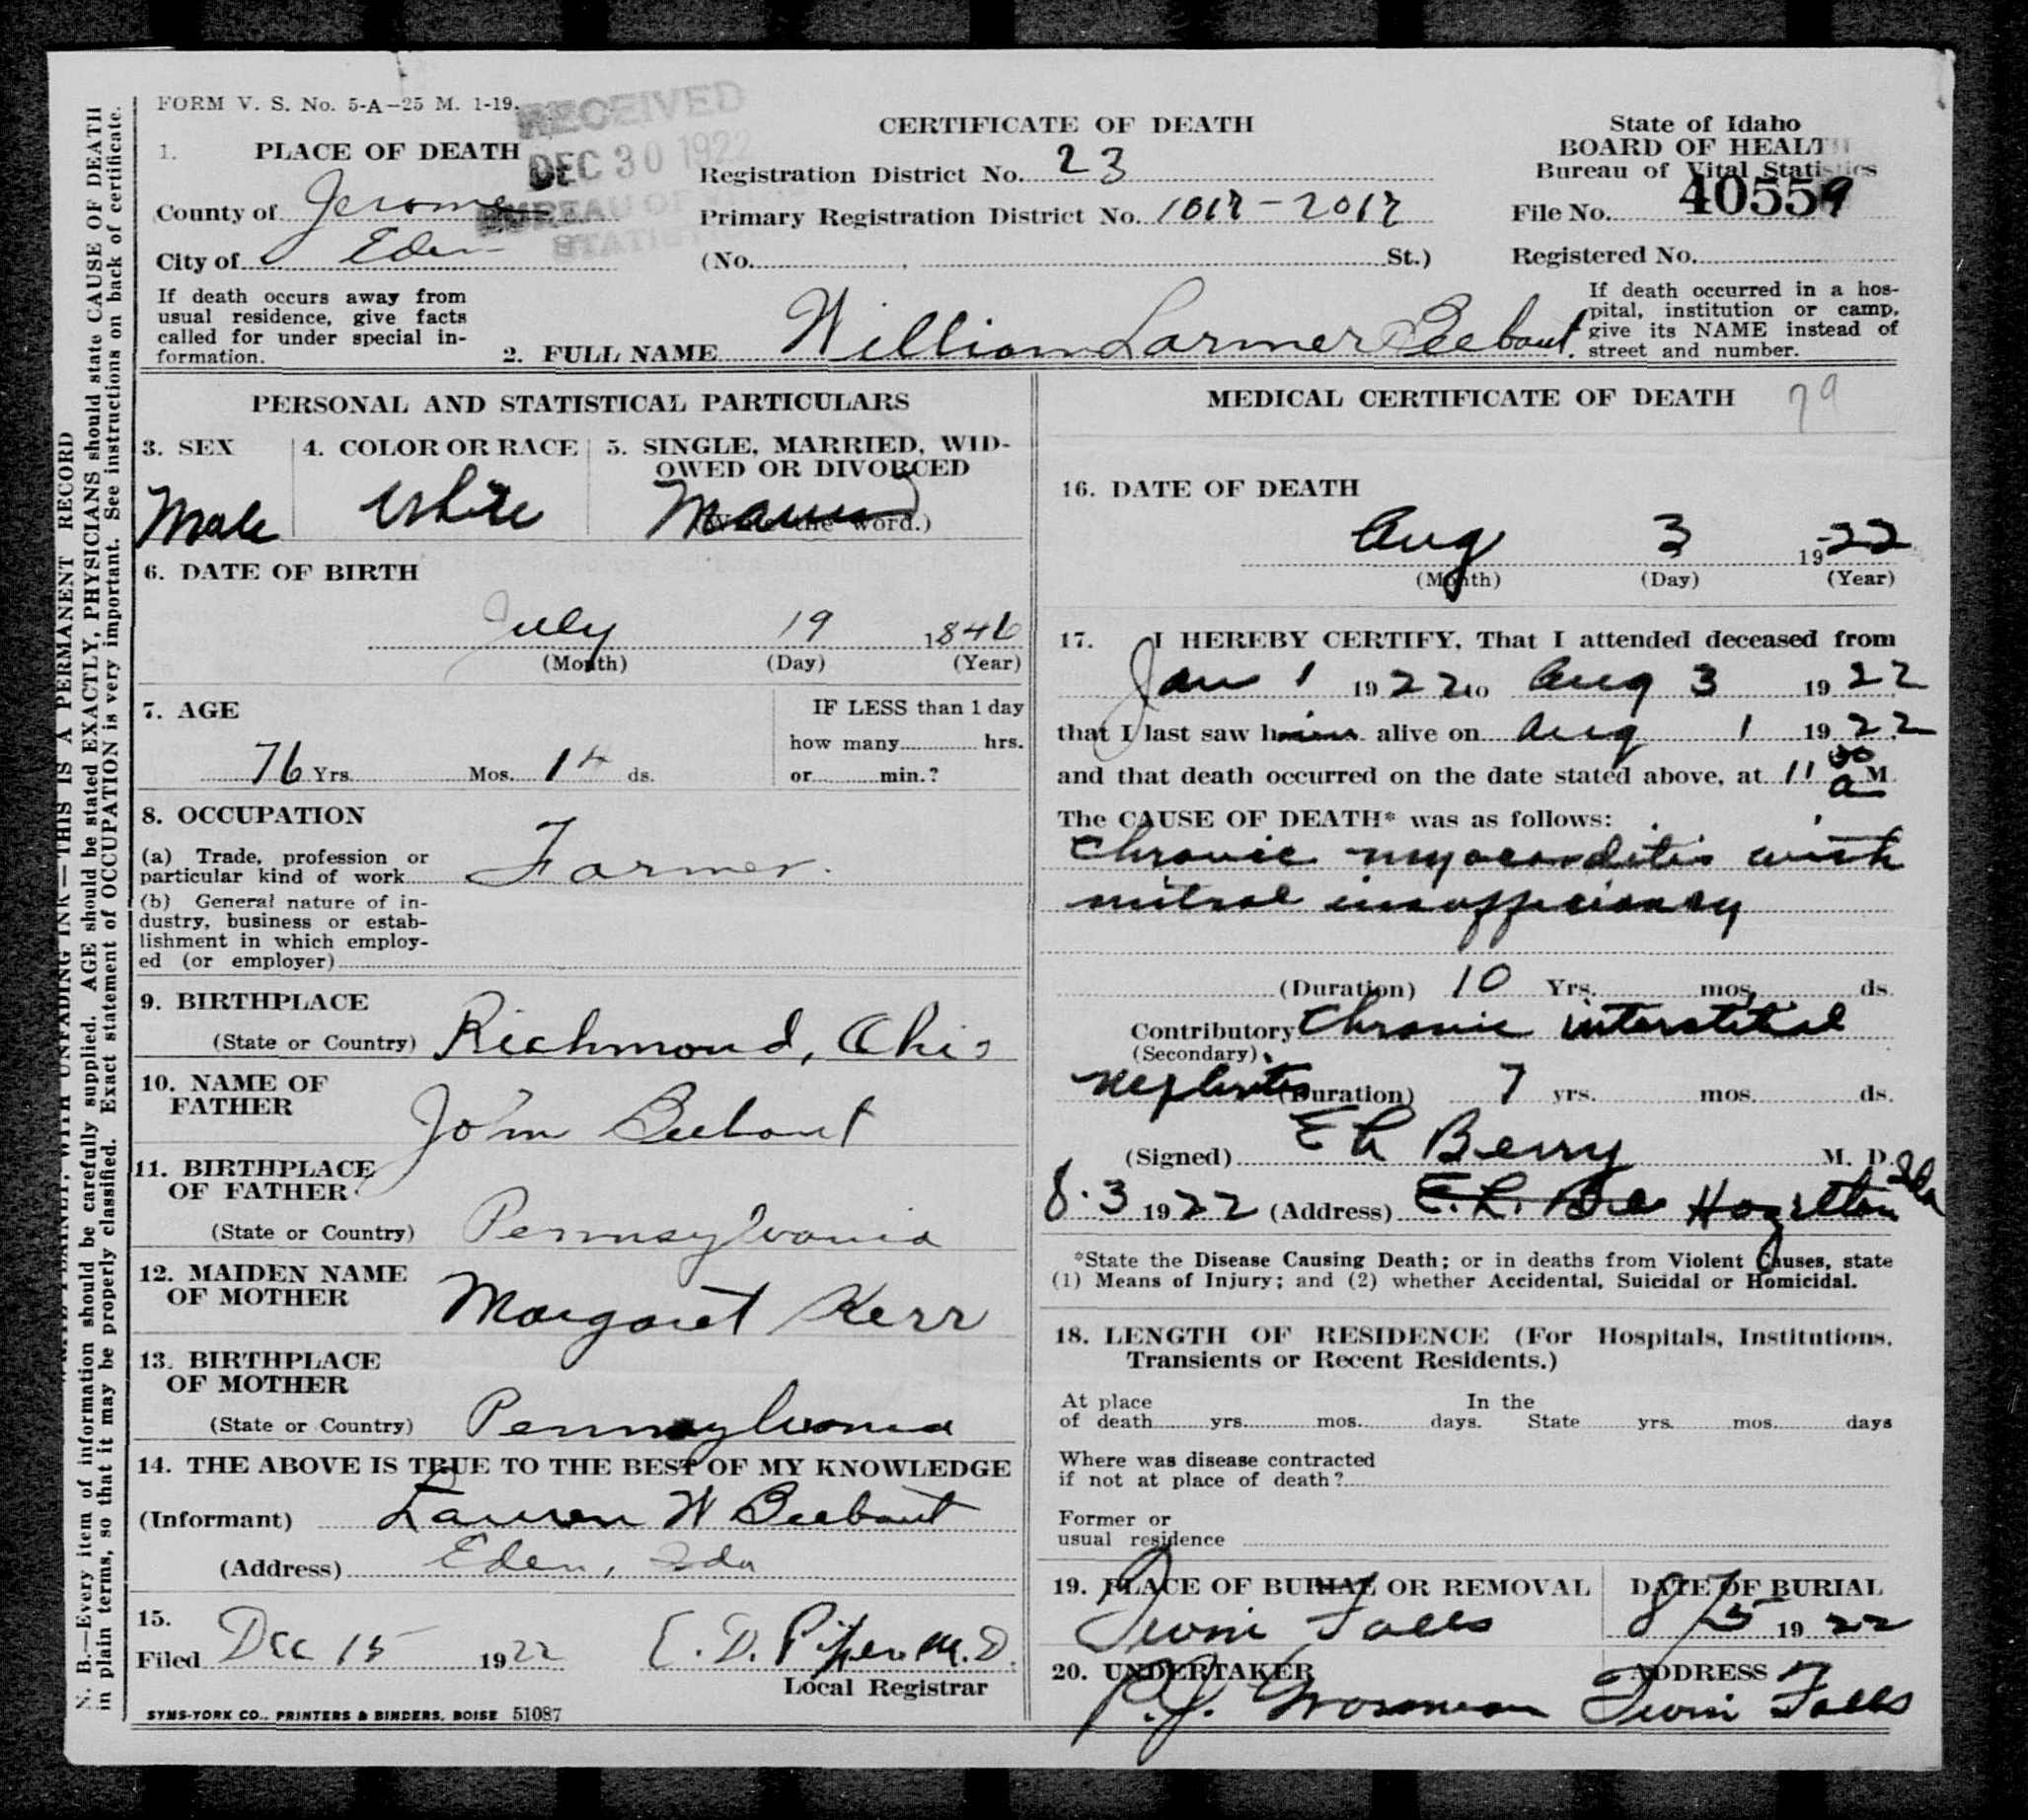 FORM V. S. No. 5-A—25 M. 1-19.
RECEIVED
DEC 30 1922
BUREAU OF
CERTIFICATE OF DEATH
State of Idaho
BOARD OF HEALTH
Bureau of Vital Statistics
1. PLACE OF DEATH
Registration District No. 23
County of Jerome
Primary Registration District No. 1017-2017
File No. 40559
City of Eden
(No. , St.)
Registered No.
If death occurs away from
usual residence, give facts
called for under special in-
formation.
2. FULL NAME William Larmer Beebout
If death occurred in a hos-
pital, institution or camp,
give its NAME instead of
street and number.
PERSONAL AND STATISTICAL PARTICULARS
3. SEX
Male
4. COLOR OR RACE
White
5. SINGLE, MARRIED, WID-
OWED OR DIVORCED
Married
(Write the word.)
6. DATE OF BIRTH
July 19 1846
(Month) (Day) (Year)
7. AGE
76 Yrs. Mos. 14 ds.
IF LESS than 1 day
how many hrs.
or min.?
8. OCCUPATION
(a) Trade, profession or
particular kind of work Farmer.
(b) General nature of in-
dustry, business or estab-
lishment in which employ-
ed (or employer)
9. BIRTHPLACE
(State or Country) Richmond, Ohio
10. NAME OF
FATHER John Beebout
11. BIRTHPLACE
OF FATHER
(State or Country) Pennsylvania
12. MAIDEN NAME
OF MOTHER Margaret Kerr
13. BIRTHPLACE
OF MOTHER
(State or Country) Pennsylvania
14. THE ABOVE IS TRUE TO THE BEST OF MY KNOWLEDGE
(Informant) Lauren W Beebout
(Address) Eden, Ida
15.
Filed Dec 15 1922 C. D. Piper M.D.
Local Registrar
SYMS-YORK CO., PRINTERS & BINDERS, BOISE 51087
MEDICAL CERTIFICATE OF DEATH 79
16. DATE OF DEATH
Aug 3 1922
(Month) (Day) (Year)
17. I HEREBY CERTIFY, That I attended deceased from
Jan 1 1922 to Aug 3 1922
that I last saw him alive on Aug 1 1922
and that death occurred on the date stated above, at 11 00 a M.
The CAUSE OF DEATH* was as follows:
Chronic myocarditis with
mitral insufficiency
(Duration) 10 Yrs. mos. ds.
Contributory Chronic interstitial
(Secondary)
nephritis (Duration) 7 yrs. mos. ds.
(Signed) E L Berry M. D.
8.3 1922 (Address) E. L. Be Hazelton Ida
*State the Disease Causing Death; or in deaths from Violent Causes, state
(1) Means of Injury; and (2) whether Accidental, Suicidal or Homicidal.
18. LENGTH OF RESIDENCE (For Hospitals, Institutions,
Transients or Recent Residents.)
At place In the
of death yrs. mos. days. State yrs. mos. days
Where was disease contracted
if not at place of death?
Former or
usual residence
19. PLACE OF BURIAL OR REMOVAL
Twin Falls
DATE OF BURIAL
8/5 1922
20. UNDERTAKER
P.J. Grossman
ADDRESS
Twin Falls
N. B.—Every item of information should be carefully supplied. AGE should be stated EXACTLY, PHYSICIANS should state CAUSE OF DEATH
in plain terms, so that it may be properly classified. Exact statement of OCCUPATION is very important. See instructions on back of certificate.
WITH UNFADING INK—THIS IS A PERMANENT RECORD